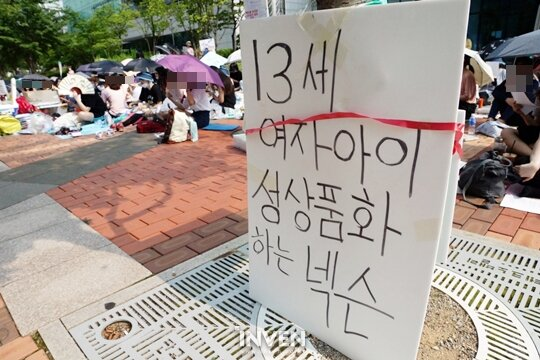 13세
여자아이
성상품화
하는 넥슨
INVEN